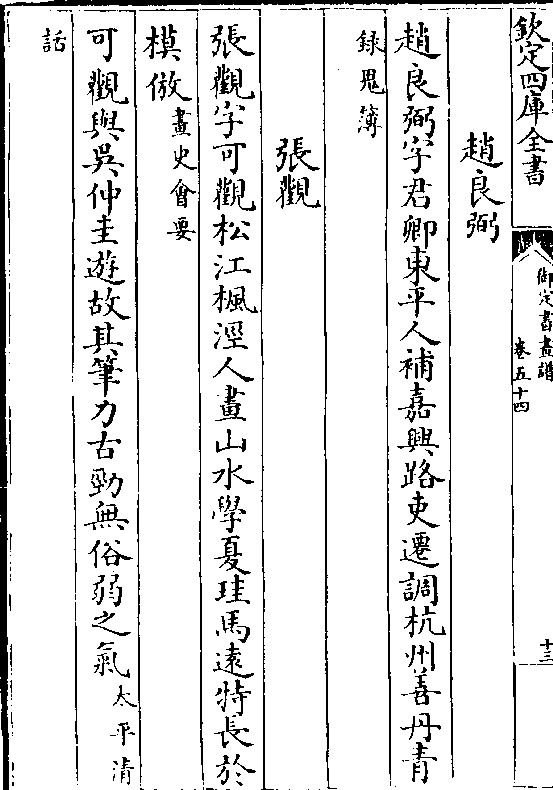 欽定四庫全書
御定書畫譜
卷五十四
十三
趙良弼
趙良弼字君卿東平人補嘉興路吏遷調杭州善丹青
録鬼簿
張觀
張觀字可觀松江楓涇人畫山水學夏珪馬遠特長於
模倣畫史會要
可觀與吳仲圭遊故其筆力古勁無俗弱之氣太平清
話